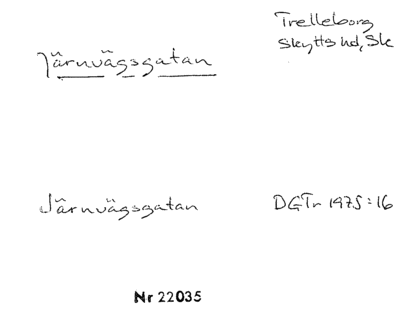 Trelleborg
Skytts hd, Sk
Järnvägsgatan
Järnvägsgatan DGTr 1975:16
Nr 22035